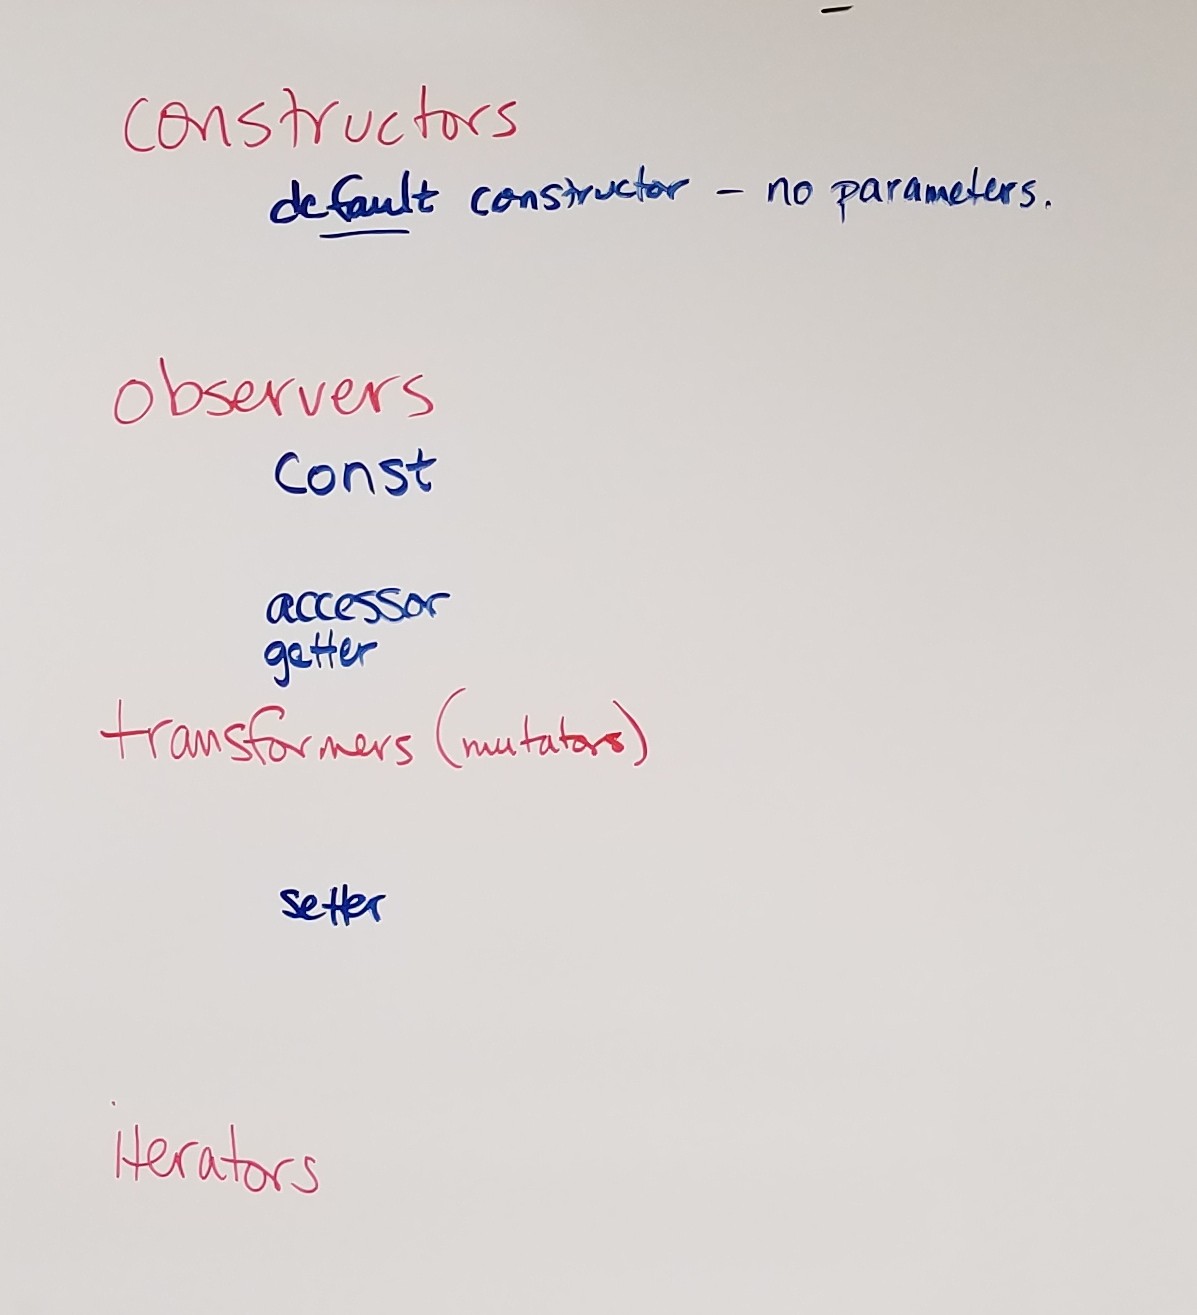 constructors
default constructor – no parameters.
observers
const
accessor
getter
transformers (mutators)
setter
iterators